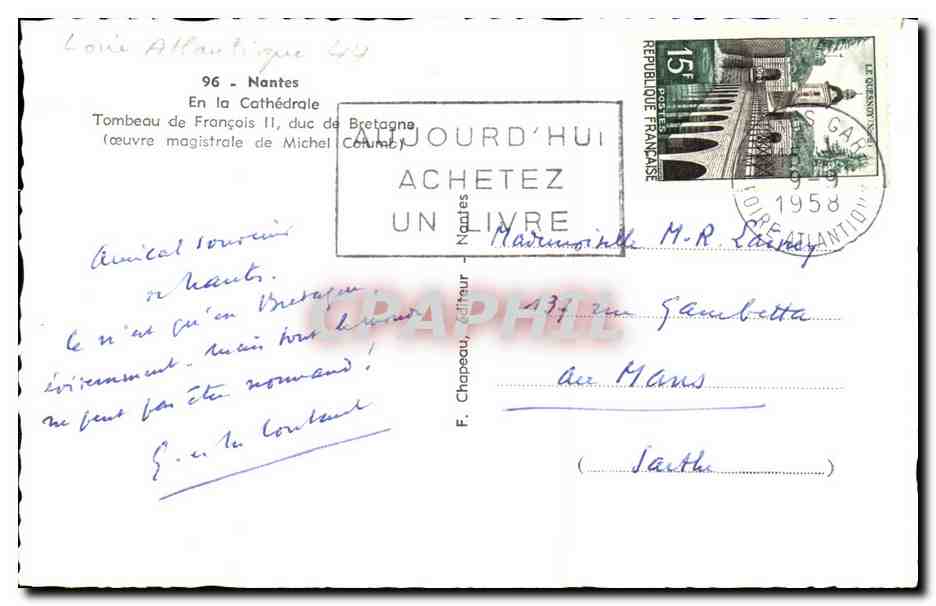 Loire Atlantique 44
96 - Nantes
En la Cathédrale
Tombeau de François II, duc de Bretagne
(œuvre magistrale de Michel Columb)
AUJOURD'HUI
ACHETEZ
UN LIVRE
15F
POSTES
REPUBLIQUE FRANÇAISE
LE QUESNOY
GARE
9-9
1958
LOIRE-ATLANTIQUE
Amical souvenir
de Nantes.
Ce n'est qu'en Bretagne,
évidemment. Mais tout le monde
ne peut pas être normand!
F. Chapeau, éditeur - Nantes
Mademoiselle M-R.
137 rue Gambetta
au Mans
(Sarthe)
CPAPHIL